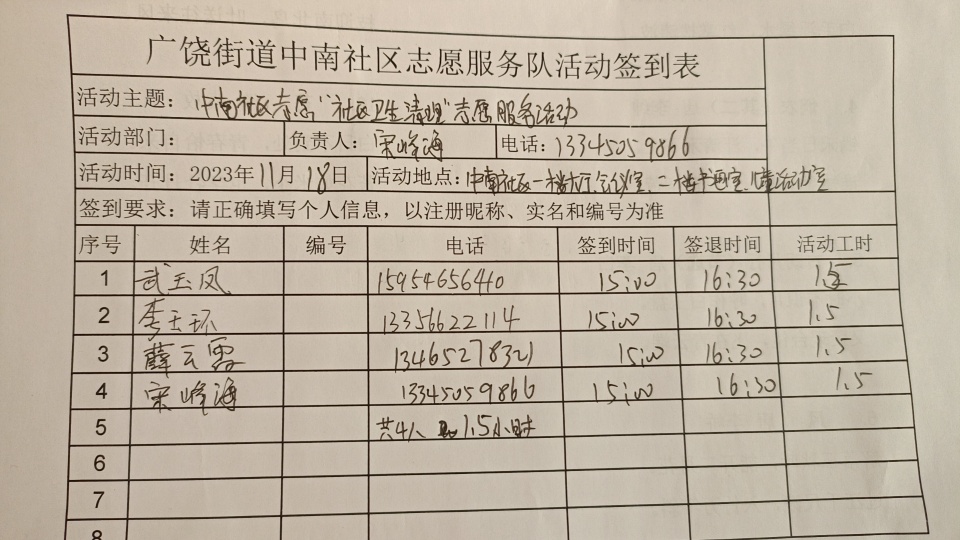 广饶街道中南社区志愿服务队活动签到表
活动主题：中南社区志愿“社区卫生清理”志愿服务活动
活动部门： 负责人：宋峰海 电话：13345059866
活动时间：2023年11月18日 活动地点：中南社区一楼大厅、会议室、二楼书画室、儿童活动室
签到要求：请正确填写个人信息，以注册昵称、实名和编号为准
序号 姓名 编号 电话 签到时间 签退时间 活动工时
1 武玉凤 15954656410 15:00 16:30 1.5
2 李玉环 13356622114 15:00 16:30 1.5
3 薛云霞 13465278321 15:00 16:30 1.5
4 宋峰海 13345059866 15:00 16:30 1.5
5 共4人 1.5小时
6
7
8